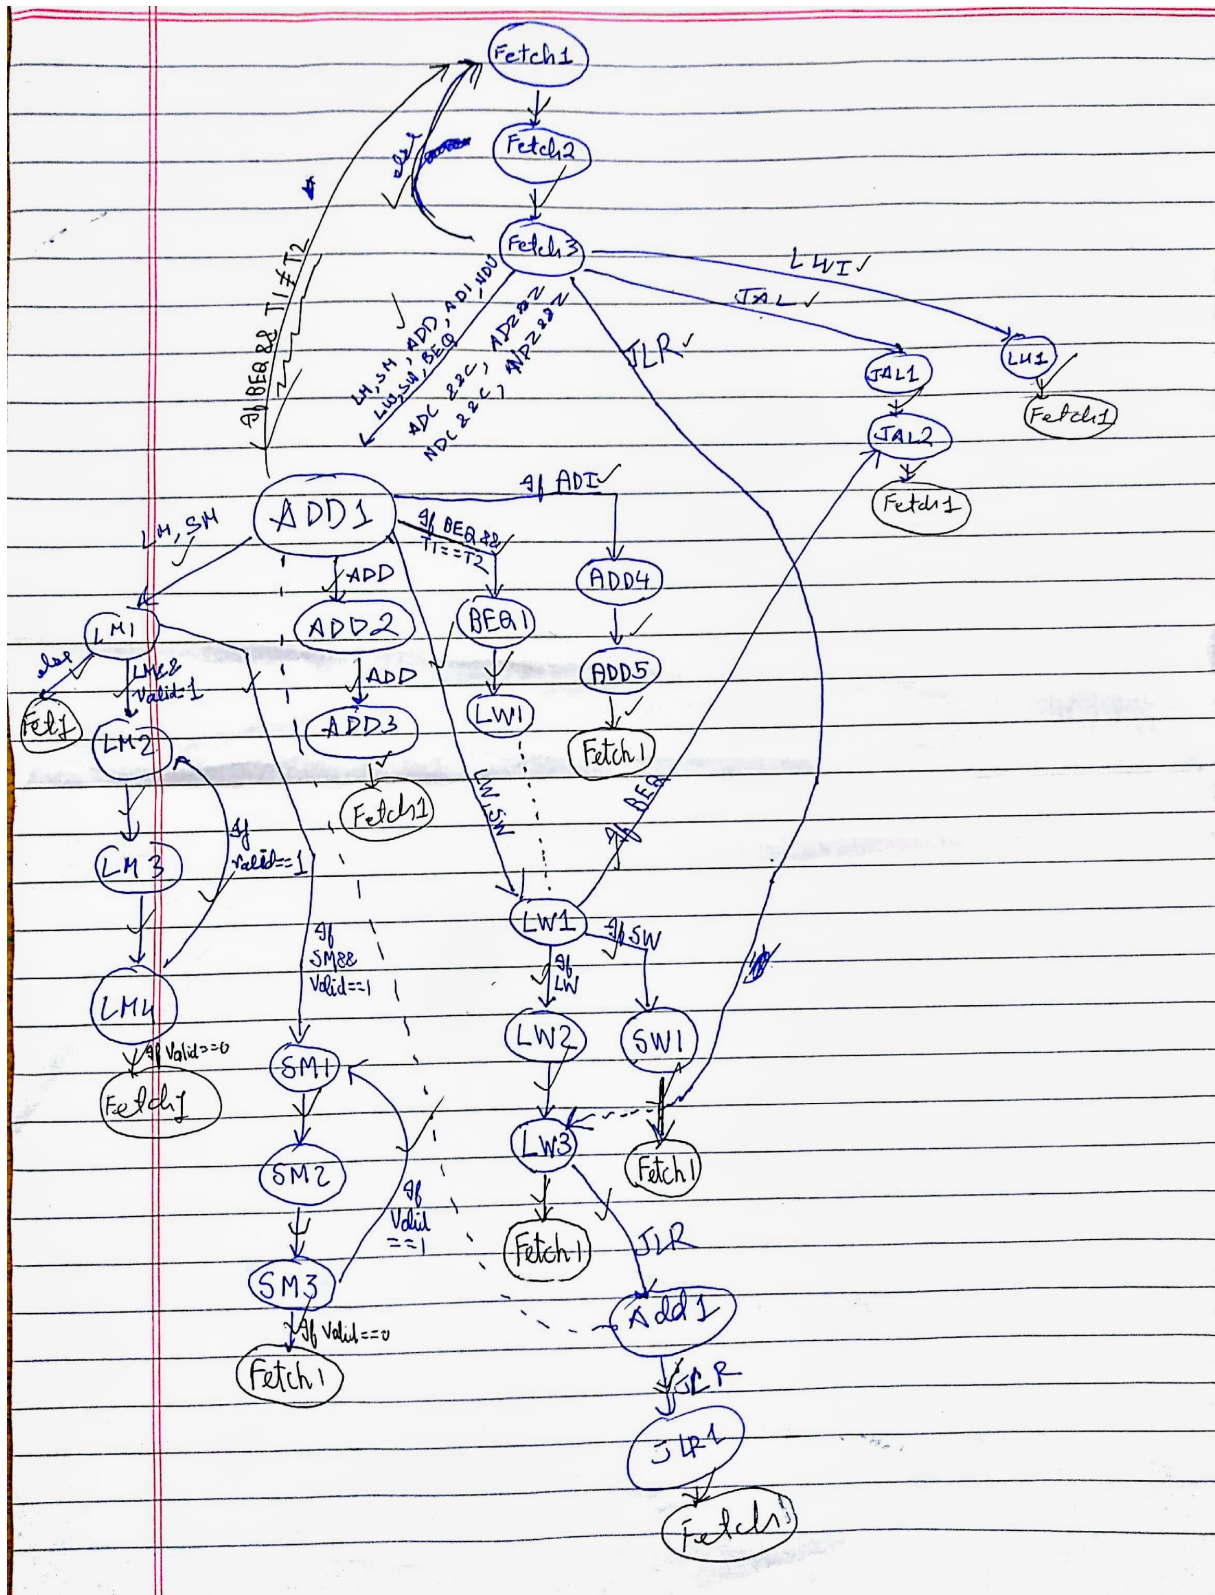 Fetch1
Fetch2
else
Fetch3
LWI
JAL
JLR
If BEQ && T1≠T2
LM, SM, ADD, ADI, NDU
LW, SW, BEQ
ADC &&C, ADZ&&Z
NDC &&C, NDZ&&Z
JAL1
LH1
Fetch1
JAL2
Fetch1
ADD1
If ADI
LM, SM
If BEQ&&
T1==T2
ADD
ADD4
LM1
ADD2
BEQ1
else
LM&&
Valid=1
ADD
ADD5
Fet1
LM2
ADD3
LW1
Fetch1
Fetch1
LW,SW
If BEQ
LM3
If
Valid==1
LW1
If SW
If
LW
If
SM&&
Valid==1
LM4
LW2
SW1
If Valid==0
Fetch1
SM1
LW3
Fetch1
SM2
If
Valid
==1
Fetch1
JLR
SM3
Add1
If Valid==0
Fetch1
JLR
JLR1
Fetch1